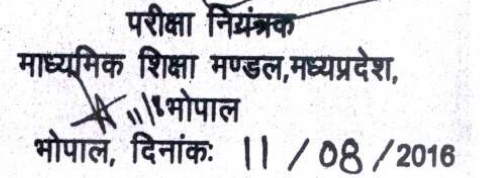 परीक्षा नियंत्रक
माध्यमिक शिक्षा मण्डल,मध्यप्रदेश,
भोपाल
भोपाल, दिनांकः 11 / 08 / 2016